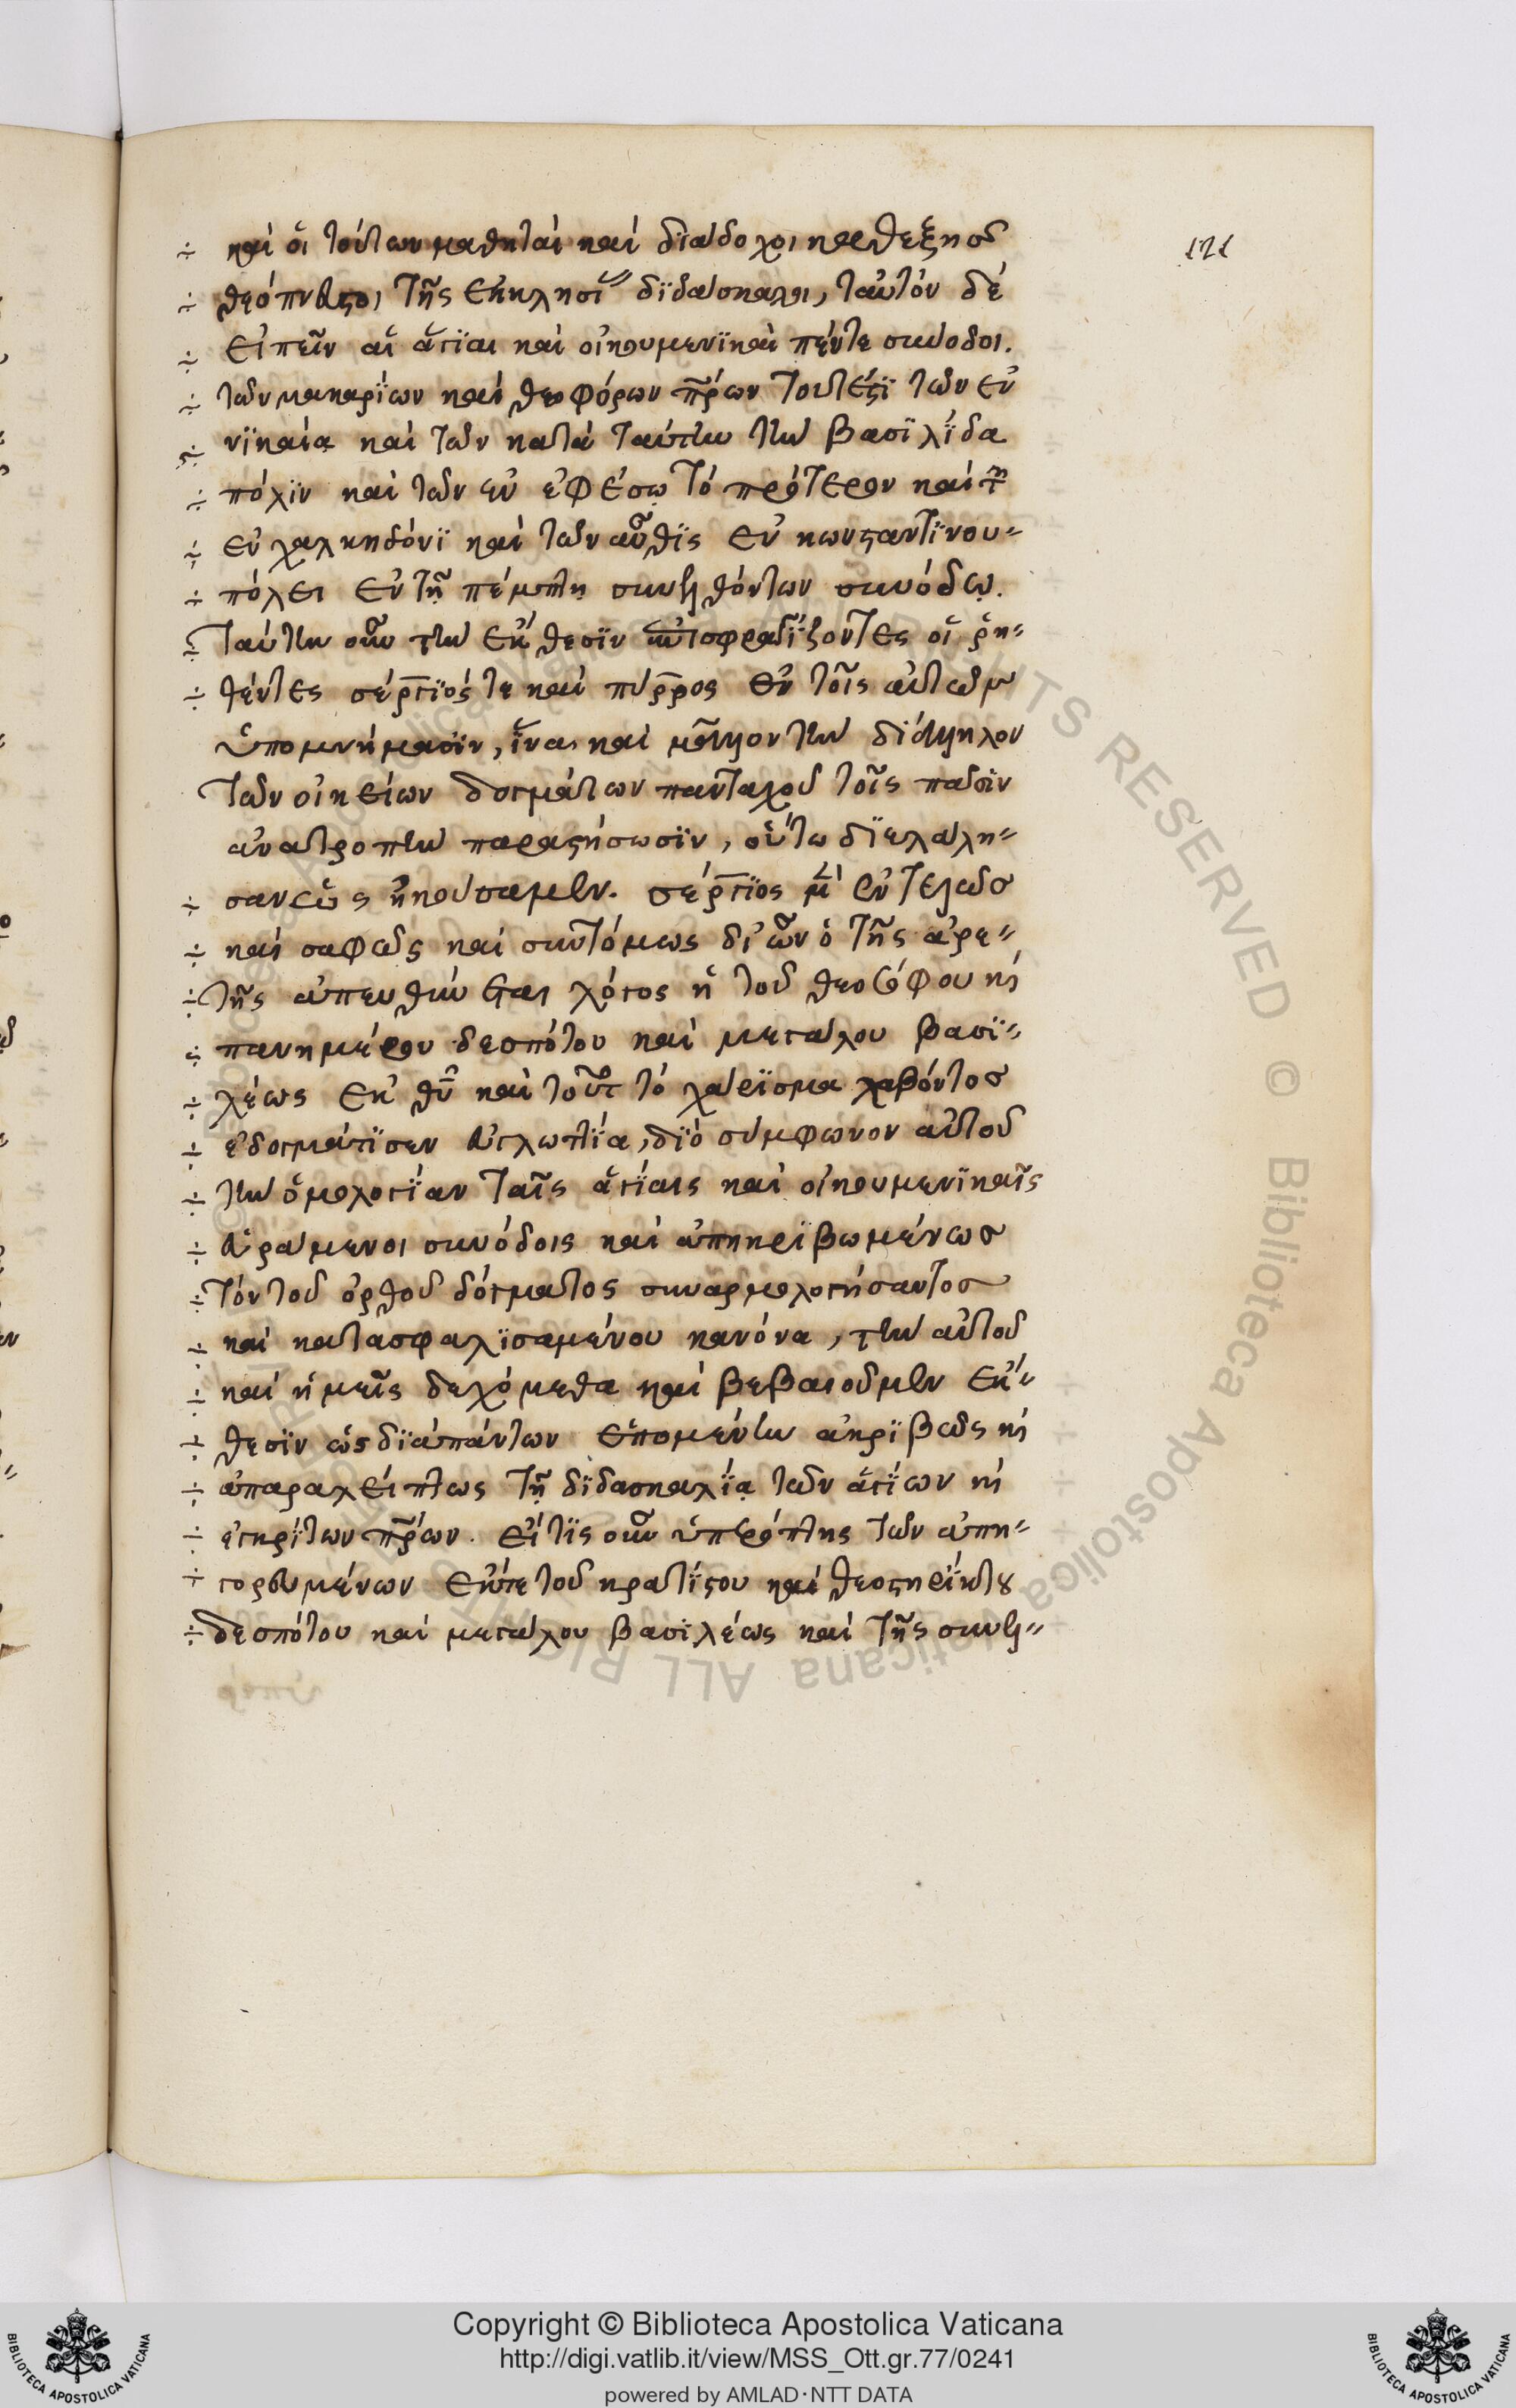 καὶ οἱ τούτων μαθηταὶ καὶ διάδοχοι καθεξῆς
θεόπνευστοι τῆς ἐκκλησί διδάσκαλοι, ταυτὸν δὲ
εἰπεῖν αἱ ἅγϊαι καὶ οἰκουμενϊκαὶ πέντε σύνοδοι.
τῶν μακαρΐων καὶ θεοφόρων πρων τουτέστϊ τῶν ἐν
νϊκαία καὶ τῶν κατὰ ταύτην τὴν βασϊλΐδα
πόλϊν καὶ τῶν ἐν ἐφέσῳ τὸ πρότερον καὶ τ
ἐν χαλκηδόνϊ καὶ τῶν αὖθϊς ἐν κωνσταντϊνου-
πόλει ἐν τῇ πέμπτῃ συνελθόντων συνόδῳ.
ταύτην οὖν τὴν ἔκθεσϊν ἐπισφραγΐζοντες οἱ ῥη-
θέντες σέργϊός τε καὶ πύρρος ἐν τοῖς αὐτῶν
ὑπομνήμασϊν, ἵνα καὶ μεῖζον τὴν δϊάδηλον
τῶν οἰκείων δογμάτων πανταχοῦ τοῖς πᾶσϊν
ἀνατροπὴν παραστήσωσϊν, οὕτω δϊελάλη-
σαν ὡς ἠκούσαμεν. σέργϊος μὲν εὐτελῶς
καὶ σαφῶς καὶ συντόμως δι' ὧν ὁ τῆς ἀρε-
τῆς ἀπευθύνεται λόγος ἢ τοῦ θεοσόφου κὶ
πανημέρου δεσπότου καὶ μεγάλου βασϊ-
λέως ἐκ θυ καὶ τοῦτ τὸ χάρϊσμα λαβόντος
ἐδογμάτϊσεν εὐγλωττΐα, δϊὸ σύμφωνον αὐτοῦ
τὴν ὁμολογΐαν ταῖς ἁγΐαις καὶ οἰκουμενϊκαῖς
εὑράμενοι συνόδοις καὶ ἀπηκρϊβωμένως
τὸν τοῦ ὀρθοῦ δόγματος συναρμολογήσαντος
καὶ κατασφαλϊσαμένου κανόνα, τὴν αὐτοῦ
καὶ ἡμεῖς δεχόμεθα καὶ βεβαιοῦμεν ἔκ-
θεσϊν ὡς δϊαπάντων ἑπομένην ἀκρϊβῶς κὶ
ἀπαραλείπτως τῇ δϊδασκαλΐᾳ τῶν ἁγΐων κὶ
ἐγκρΐτων πρων. εἴ τϊς οὖν ὑπερόπτης τῶν ἀπη-
γορευμένων ἔκ τε τοῦ κρατΐστου καὶ θεοστηρΐκτου
δεσπότου καὶ μεγάλου βασϊλέως καὶ τῆς συνει-
121
Copyright © Biblioteca Apostolica Vaticana
http://digi.vatlib.it/view/MSS_Ott.gr.77/0241
powered by AMLAD·NTT DATA